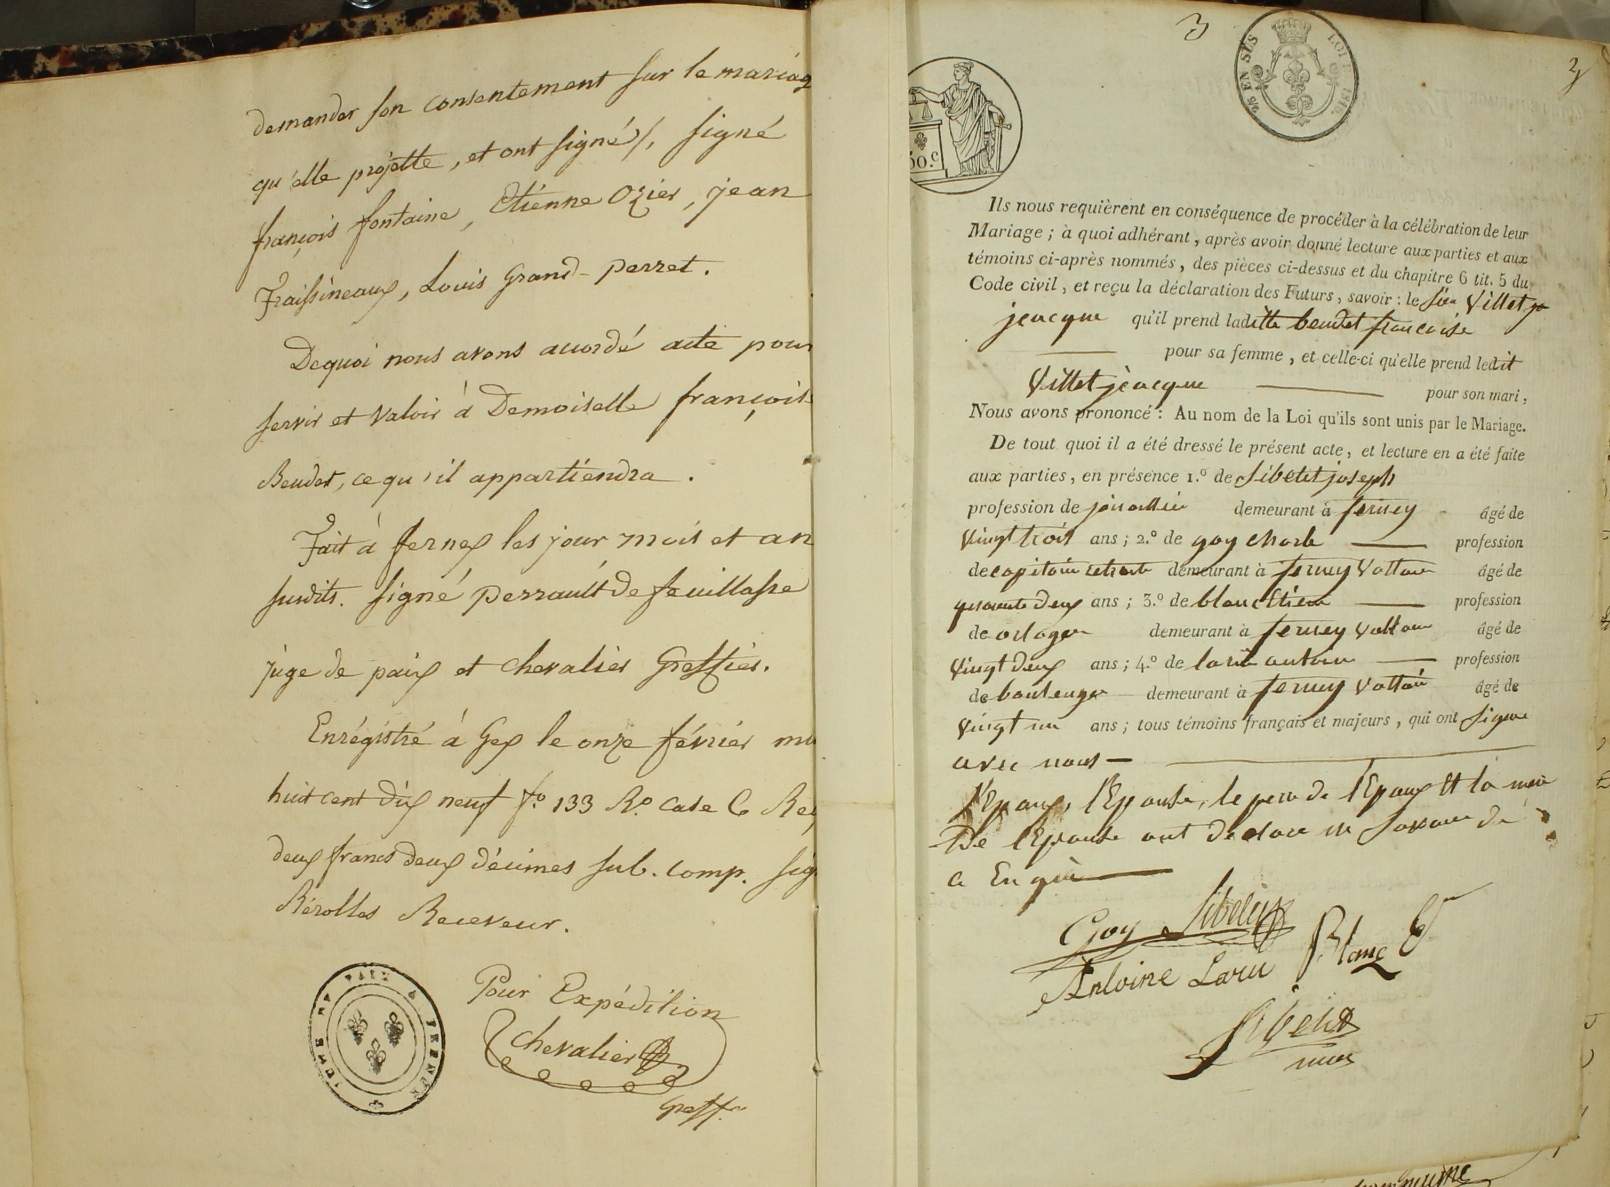 demander son consentement sur le mariag
qu'elle projette, et ont signé/. signé
françois fontaine, Etienne Ozier, jean
Fraissineaux, Louis Grand-perret.
Dequoi nous avons accordé acte pour
servir et valoir à Demoiselle françois
Beudet, ce qu'il appartiendra.
Fait à ferney les jour mois et an
susdits. signé perrault de feuillasse
juge de paix et chevalier Greffier.
Enrégistré à Gex le onze février
huit cent dix neuf fo. 133 Ro. Case 6
deux francs deux décimes sub. comp. sig
Rérolles Receveur.
Pour Expédition
Chevalier
Greff.
3
3
EN SUS
LOI 1816
50.c
Ils nous requièrent en conséquence de procéder à la célébration de leur
Mariage ; à quoi adhérant, après avoir donné lecture aux parties et aux
témoins ci-après nommés, des pièces ci-dessus et du chapitre 6 tit. 5 du
Code civil, et reçu la déclaration des Futurs, savoir : le sieur Villet
jeacque qu'il prend laditte beudet francoise
pour sa femme, et celle-ci qu'elle prend ledit
Villet jeacque pour son mari,
Nous avons prononcé : Au nom de la Loi qu'ils sont unis par le Mariage.
De tout quoi il a été dressé le présent acte, et lecture en a été faite
aux parties, en présence 1.o de Sibelet joseph
profession de demeurant à ferney âgé de
Vingt trois ans ; 2.o de goy charle profession
de capitain retraite demeurant à ferney Voltaire âgé de
quarente deux ans ; 3.o de blanc profession
de orloger demeurant à ferney Voltaire âgé de
Vingt deux ans ; 4.o de larue antoine profession
de boulenger demeurant à ferney Voltaire âgé de
Vingt un ans ; tous témoins français et majeurs, qui ont signé
avec nous
l'Epoux, l'Epouse, le pere de l'Epoux Et la mere
De l'Epouse ont declaré ne savoir
Goy Sibelet
Antoine Larue Blanc E
Sibelet